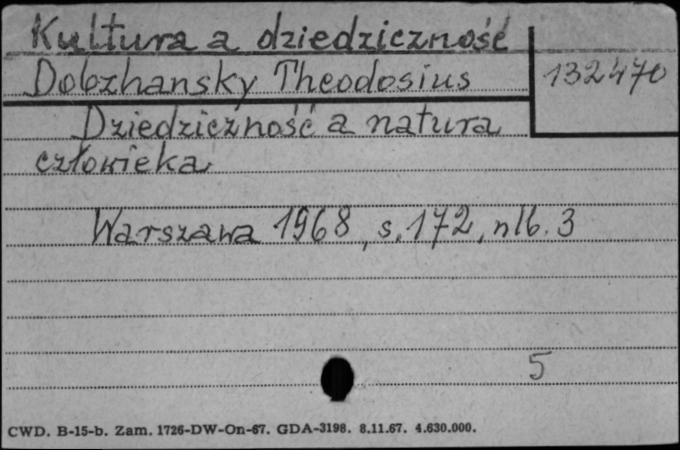 Kultura a dziedziczność
Dobzhansky Theodosius
132470
Dziedziczność a natura
człowieka
Warszawa 1968, s. 172, nlb. 3
5
CWD. B-15-b. Zam. 1726-DW-On-67. GDA-3198. 8.11.67. 4.630.000.